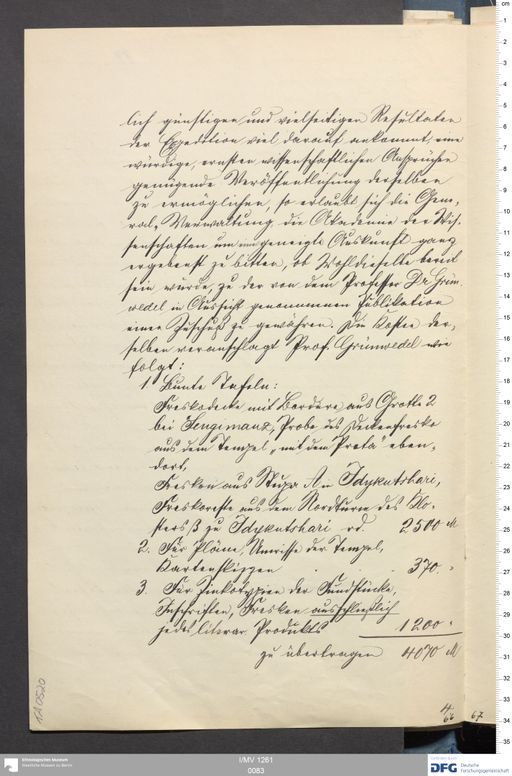 lich günstigen und vielseitigen Resultaten
der Expedition viel darauf ankommt, eine
würdige, ernsten wissenschaftlichen Ansprüchen
genügende Veröffentlichung derselben
zu ermöglichen, so erlaubt sich die Gene-
ral-Verwaltung die Akademie der Wis-
senschaften um geneigte Auskunft ganz
ergebenst zu bitten, ob Wohldieselbe bereit
sein würde, zu der von dem Professor Dr Grün-
wedel in Aussicht genommenen Publikation
einen Zuschuß zu gewähren. Die Kosten der-
selben veranschlagt Prof. Grünwedel wie
folgt:
1 Bunte Tafeln:
Freskodecke mit Bordüre aus Grotte 2
bei Sengimauz, Probe des Deckenfresko
aus dem Tempel „mit dem Preta" eben-
dort,
Fresken aus Stupa An Idykutshari,
Freskoreste aus dem Nordturm des Klo-
sters ß zu Idykutshari rd. 2500 M
2. Für Pläne, Umrisse der Tempel,
Kartenskizzen 370 "
3. Für Zinkotypien der Fundstücke,
Inschriften, Fresken ausschließlich
jedes literar Produkts 1200 "
zu übertragen 4070 M
4/66
67
IA 0520
Ethnologisches Museum
Staatliche Museen zu Berlin
I/MV 1261
0083
DFG Deutsche
Forschungsgemeinschaft